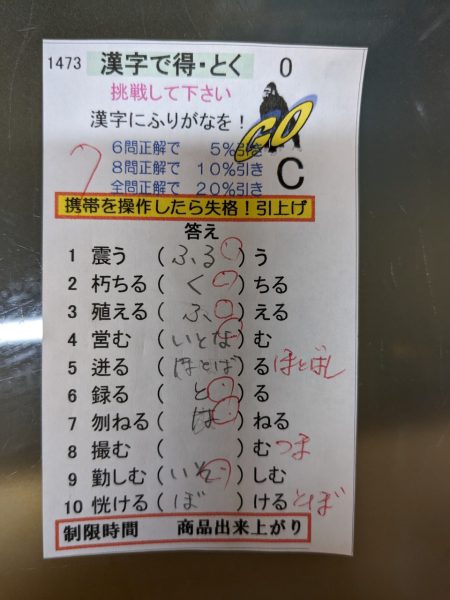 1473 漢字で得・とく 0
挑戦して下さい
漢字にふりがなを！
GO
C
6問正解で 5%引き
8問正解で 10%引き
全問正解で 20%引き
7
携帯を操作したら失格！引上げ
答え
1 震う (ふる) う
2 朽ちる (く) ちる
3 殖える (ふ) える
4 営む (いとな) む
5 迸る (ほとば) る ほとばし
6 録る (と) る
7 刎ねる (は) ねる
8 撮む ( ) む つま
9 勤しむ (いそ) しむ
10 恍ける (ぼ) ける とぼ
制限時間 商品出来上がり